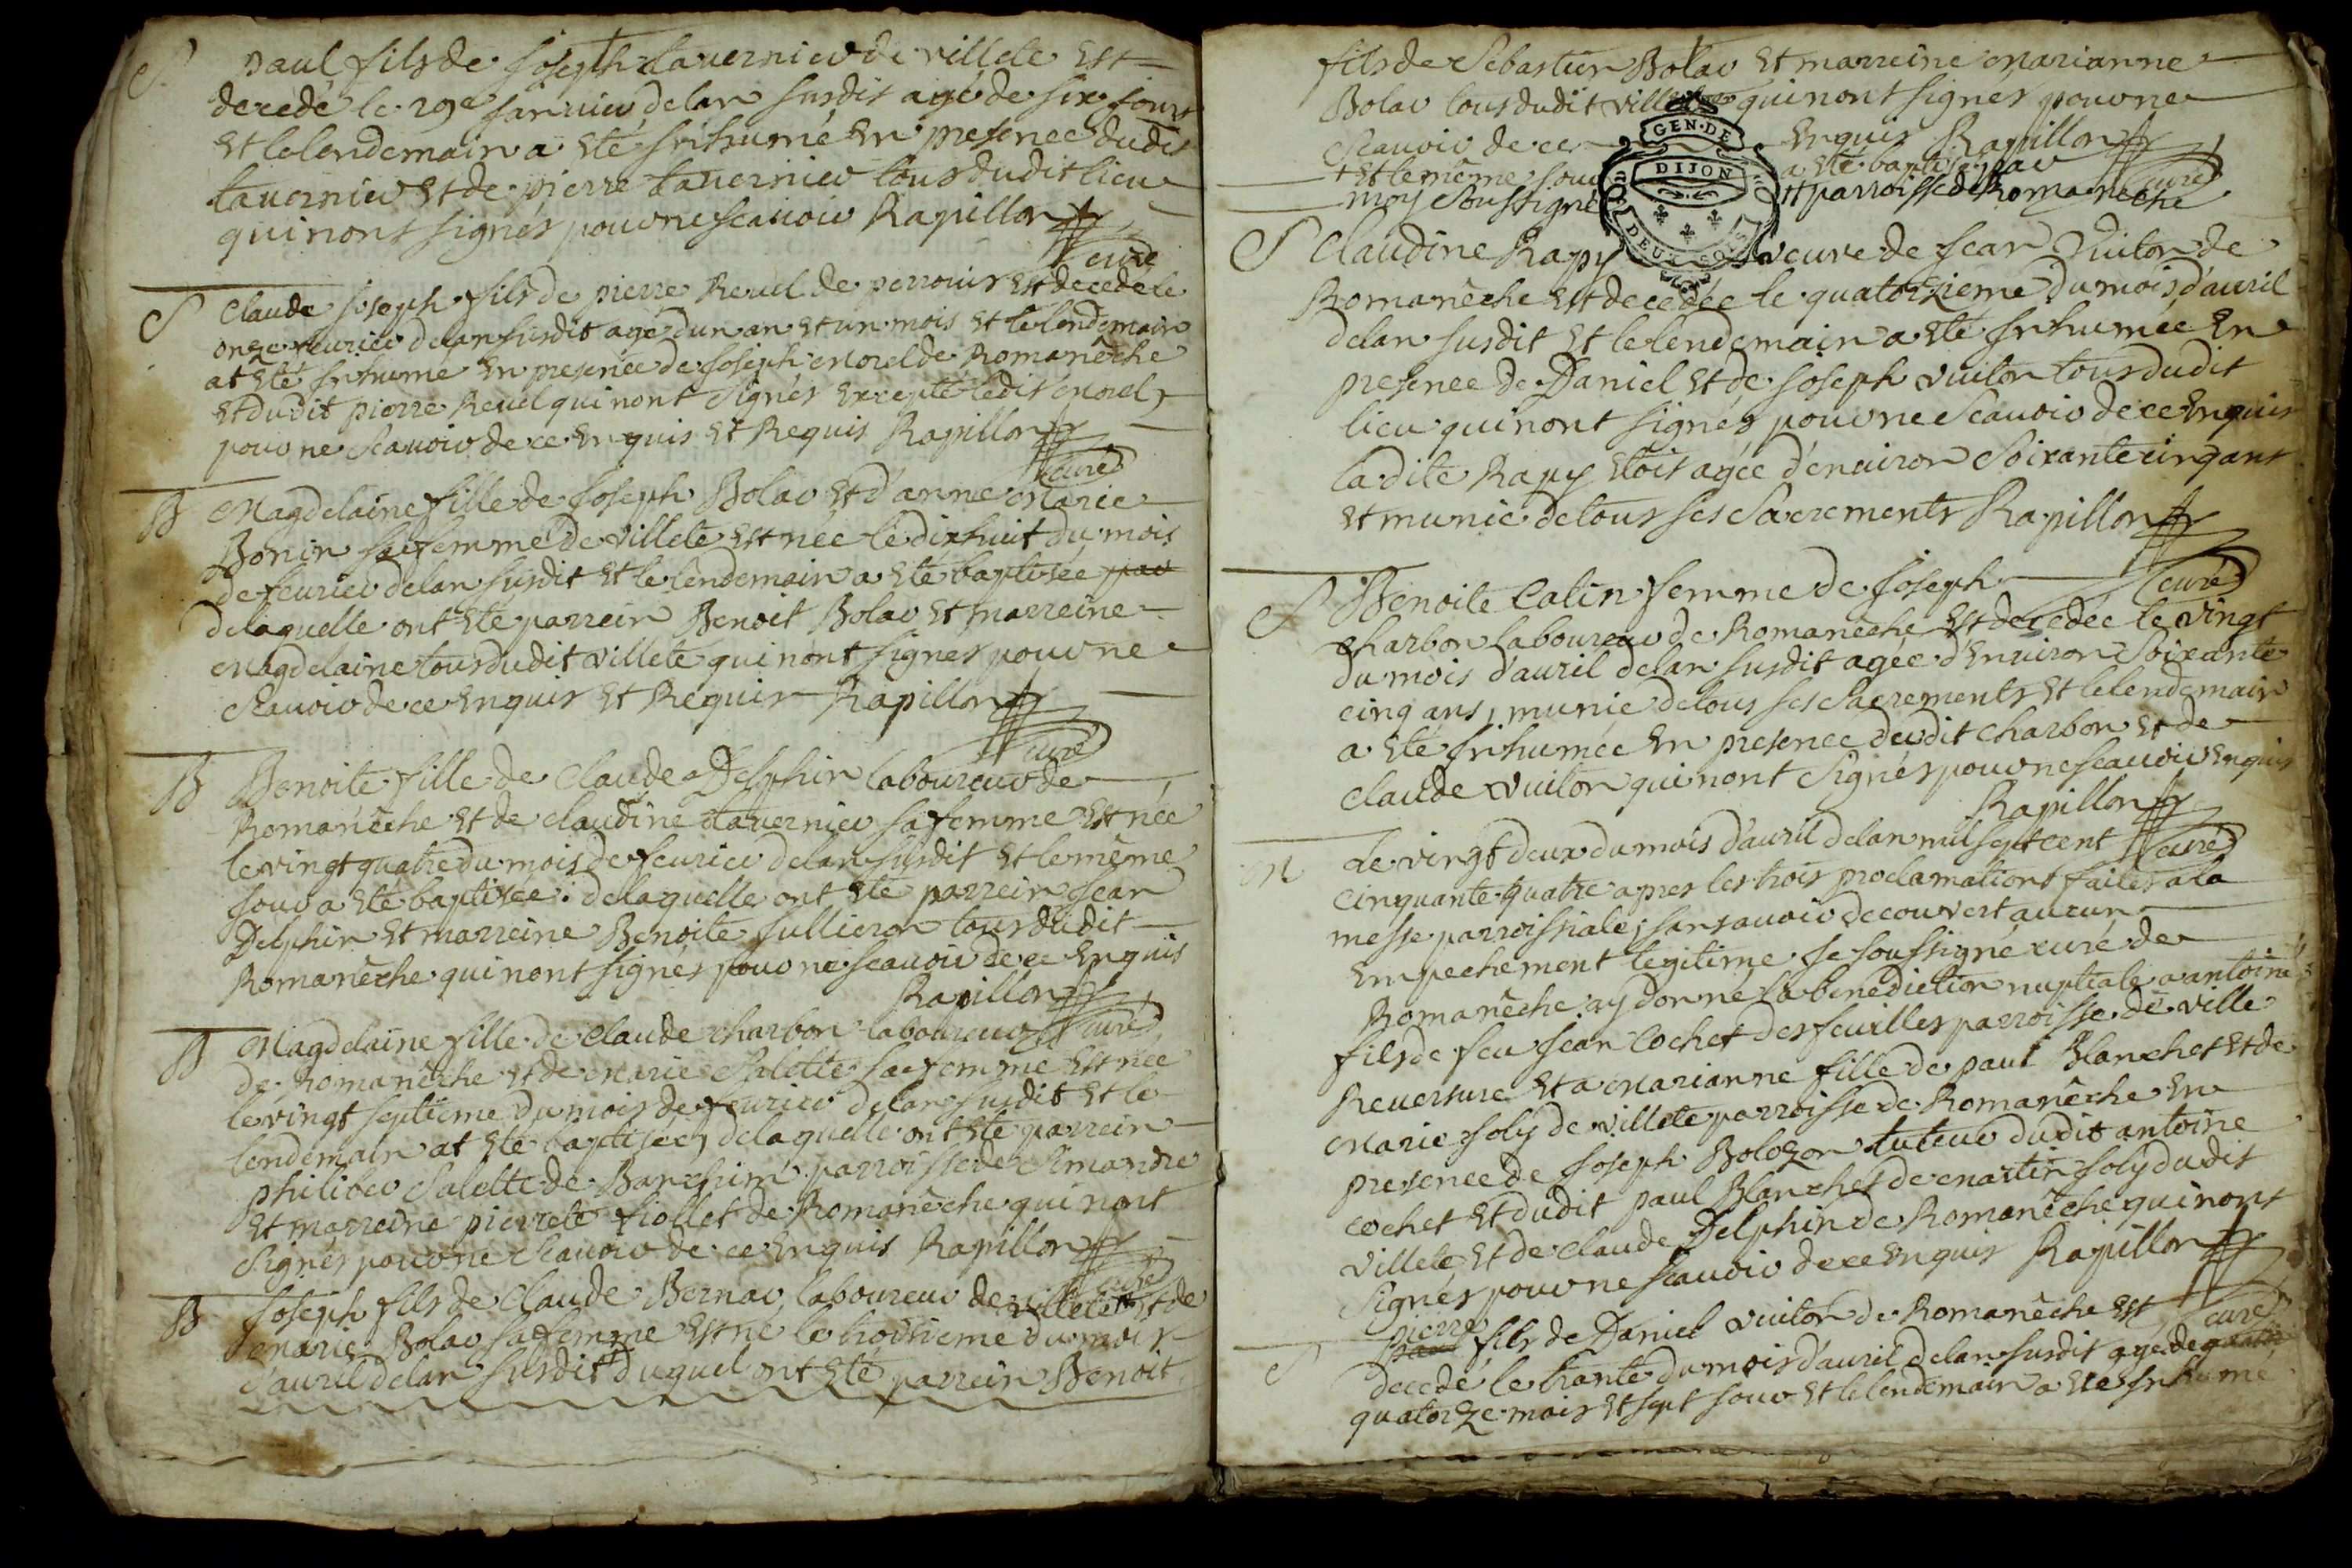 S paul fils de Joseph tavernier de villete Est
decedé le 29e janvier de lan susdit agé de six jours
Et le lendemain a Eté Inhumé En presence dudit
tavernier Et de pierre tavernier tous dudit lieu
qui nont signés pour ne scavoir Rapillon
curé
S Claude joseph fils de pierre Revel de perrouis Est decede le
onze fevrier delan susdit agé dun an Et un mois Et le lendemain
at Eté Inhumé En presence de Joseph Morel de Romanêche
Et dudit pierre Revel qui nont Signés Excepté ledit Morel
pour ne Scavoir de ce Enquis Et Requis Rapillon
curé
B Magdelaine fille de Joseph Bolar Et d'anne Marie
Bonin sa femme de villete Est née le dixhuit du mois
de fevrier delan susdit Et le lendemain a Eté baptisée par
delaquelle ont Eté parrein Benoit Bolar Et marreine
Magdelaine tous dudit villete qui nont signes pour ne
Scavoir de ce Enquis Et Requis Rapillon
curé
B Benoite fille de Claude Delphin laboureur de
Romanêche Et de claudine tavernier sa femme Est née
le vingt quatre du mois de fevrier delan susdit Et le même
jour a Eté baptisée : delaquelle ont Eté parrein jean
Delphin Et marreine Benoite Jullieron tous dudit
Romanêche qui nont signés pour ne scavoir de ce Enquis
Rapillon
curé
B Magdelaine fille de claude charbon laboureur
de Romanêche Et de Marie Salette sa femme Est née
le vingt septieme du mois de fevrier delan susdit Et le
lendemain at Eté baptisée, delaquelle ont Eté parrein
philiber Salette de parroisse de Simandre
Et marreine pierrete fiollet de Romanêche qui nont
Signés pour ne Scavoir de ce Enquis Rapillon
curé
B Joseph fils de Claude Bernar laboureur de villete Et de
Marie Bolar sa femme Est né le troisieme du mois
d'avril delan susdit duquel ont Eté parrein Benoit
fils de Sebastien Bolar Et marreine Marianne
Bolar tous dudit villete qui nont signés pour ne
Scavoir de ce Enquis Rapillon
GEN. DE DIJON DEUX SOLS
+ Et le même jour a Eté baptisé par curé
moy Soussigné Et parroisse de Romaneche
S Claudine Rapy veuve de jean Vuiton de
Romanêche Est decedée le quatorzieme du mois d'avril
delan susdit Et le lendemain a Eté Inhumée En
presence de Daniel Et de Joseph vuiton tous dudit
lieu qui nont signés pour ne Scavoir de ce Enquis
la dite Rapy Etoit agée d'environ Soixante cinq ans
Et munie de tous ses Sacrements Rapillon
curé
S Benoite Catin femme de Joseph
charbon laboureur de Romanêche Est decedée le vingt
du mois d'avril delan susdit agée d'Environ Soixante
cinq ans, munie de tous ses Sacrements Et le lendemain
a Eté Inhumée En presence dudit charbon Et de
claude vuiton qui nont Signés pour ne scavoir Enquis
Rapillon
curé
M Le vingt deux du mois d'avril delan mil sept cent
cinquante quatre apres les trois proclamations faites a la
messe parroissiale, sans avoir decouvert aucun
Empechement legitime je soussigné curé de
Romanêche ay donné la benediction nuptiale a antoine
fils de feu jean Cochet des feuilles parroisse de ville
Reversure Et a Marianne fille de paul Blanchet Et de
Marie joly de villete parroisse de Romanêche En
presence de Joseph Bolozon tuteur dudit antoine
cochet Et dudit paul Blanchet de Martin joly dudit
villete Et de claude Delphin de Romanêche qui nont
Signés pour ne scavoir de ce Enquis Rapillon
curé
pierre
S paul fils de Daniel vuiton de Romanêche Est
decedé le trante du mois d'avril delan susdit agé de quatre
quatorze mois Et sept jour Et le lendemain a Eté Inhumé